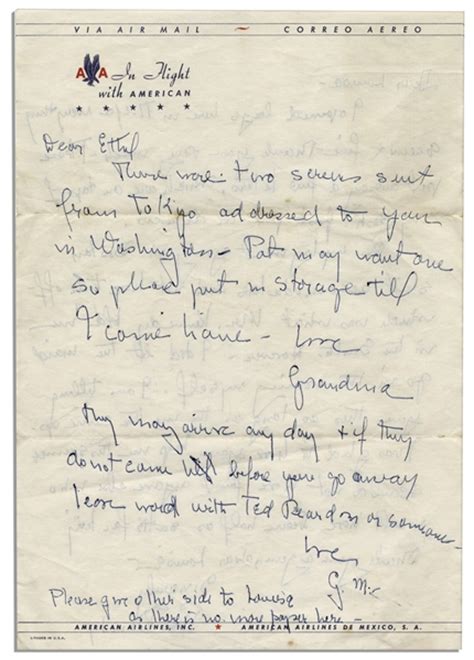 VIA AIR MAIL - CORREO AEREO
AA In Flight
with AMERICAN
Dear Ethel
There were two screens sent
from Tokyo addressed to you
in Washington - Pat may want one
so please put in storage till
I come home - Love
Grandma
They may arrive any day & if they
do not come before you go away
leave word with Ted Reardon or someone -
Love
G. Mc
Please give other side to Louise
as there is no more paper here -
AMERICAN AIRLINES, INC. AMERICAN AIRLINES DE MEXICO, S. A.